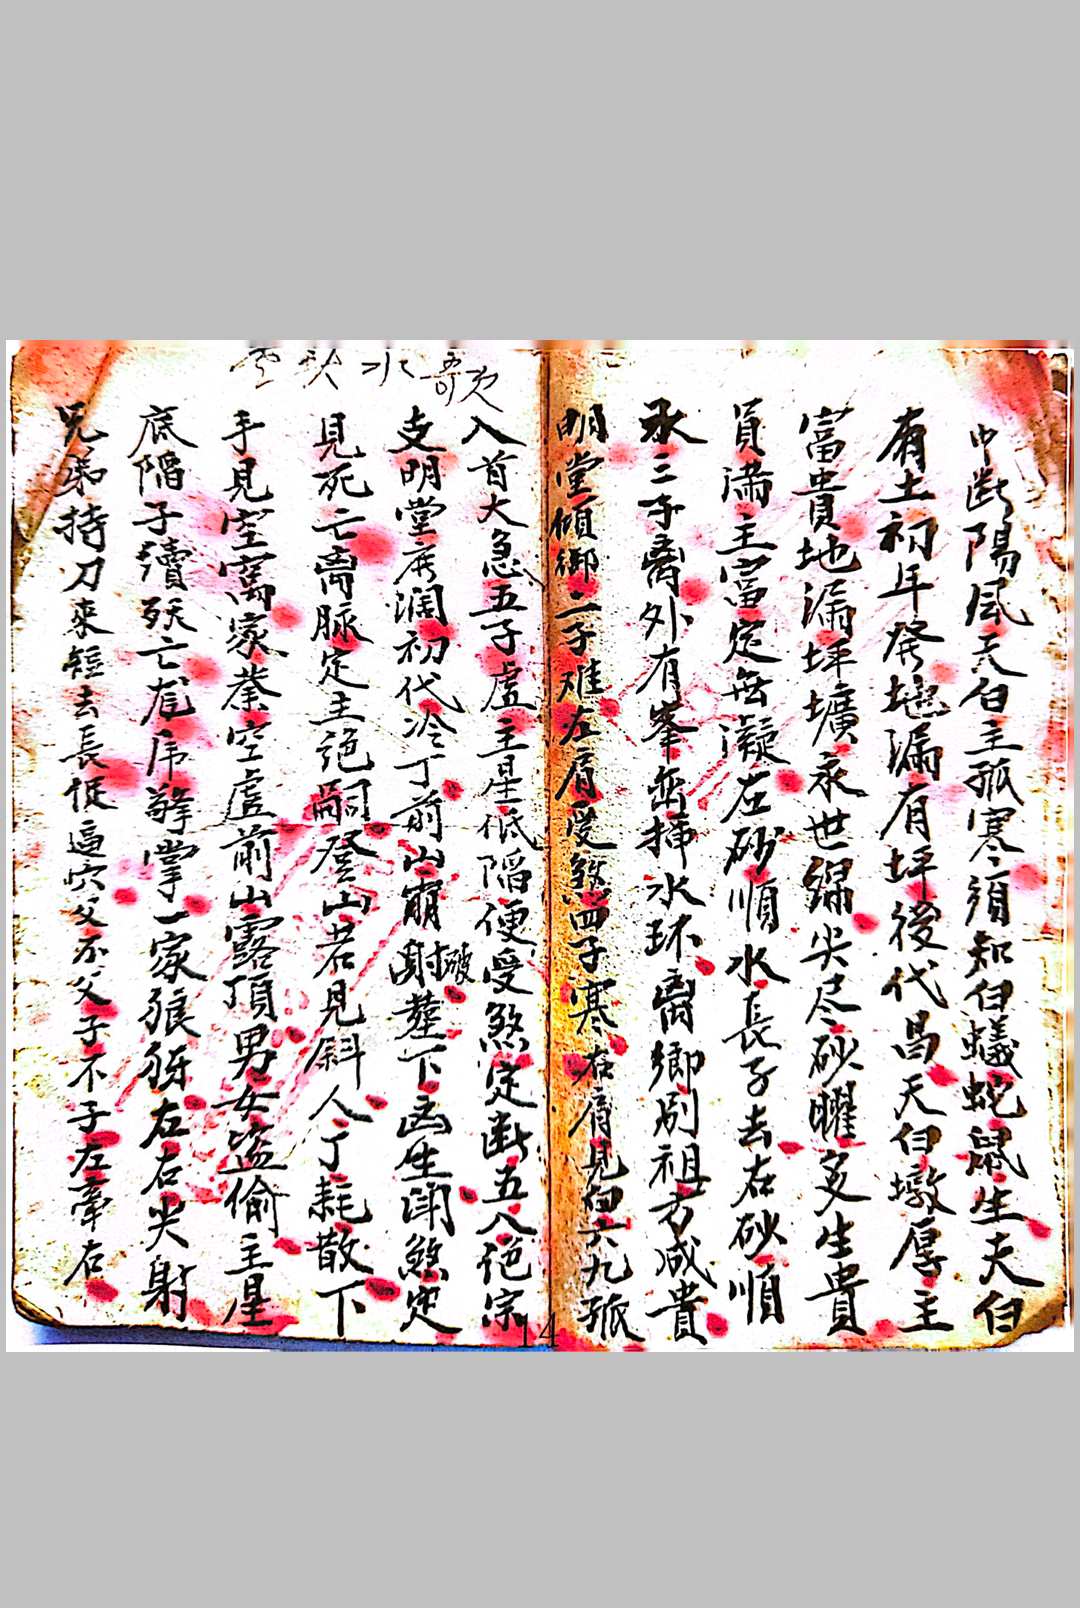 中断陽風天臼主孤寒須知臼蟻蛇鼠生天臼
有土初年発地漏有坪後代昌天臼墩厚主
富貴地漏坪壙永世綿尖尽砂曜多生貴
員滿主富定無凝左砂順水長子去右砂順
水三子离外有峯巒揷水环离鄉別祖方成貴
明堂傾御二子难左肩受煞四子寒右肩見向六九孤
水歌
入首大急五子虛主星低陷便受煞定断五八绝宗
支明堂広濶初代冷丁前山崩破射墓下凶生闰煞定
見死亡离脉定主绝嗣登山若見斜人丁耗散下
手見空窩家業空虛前山露頂男女盜偷主星
底陷子續殀亡尨乕擎掌一家狼 左右尖射
兄弟持刀來短去長促逼穴父不父子不子左牽右
14